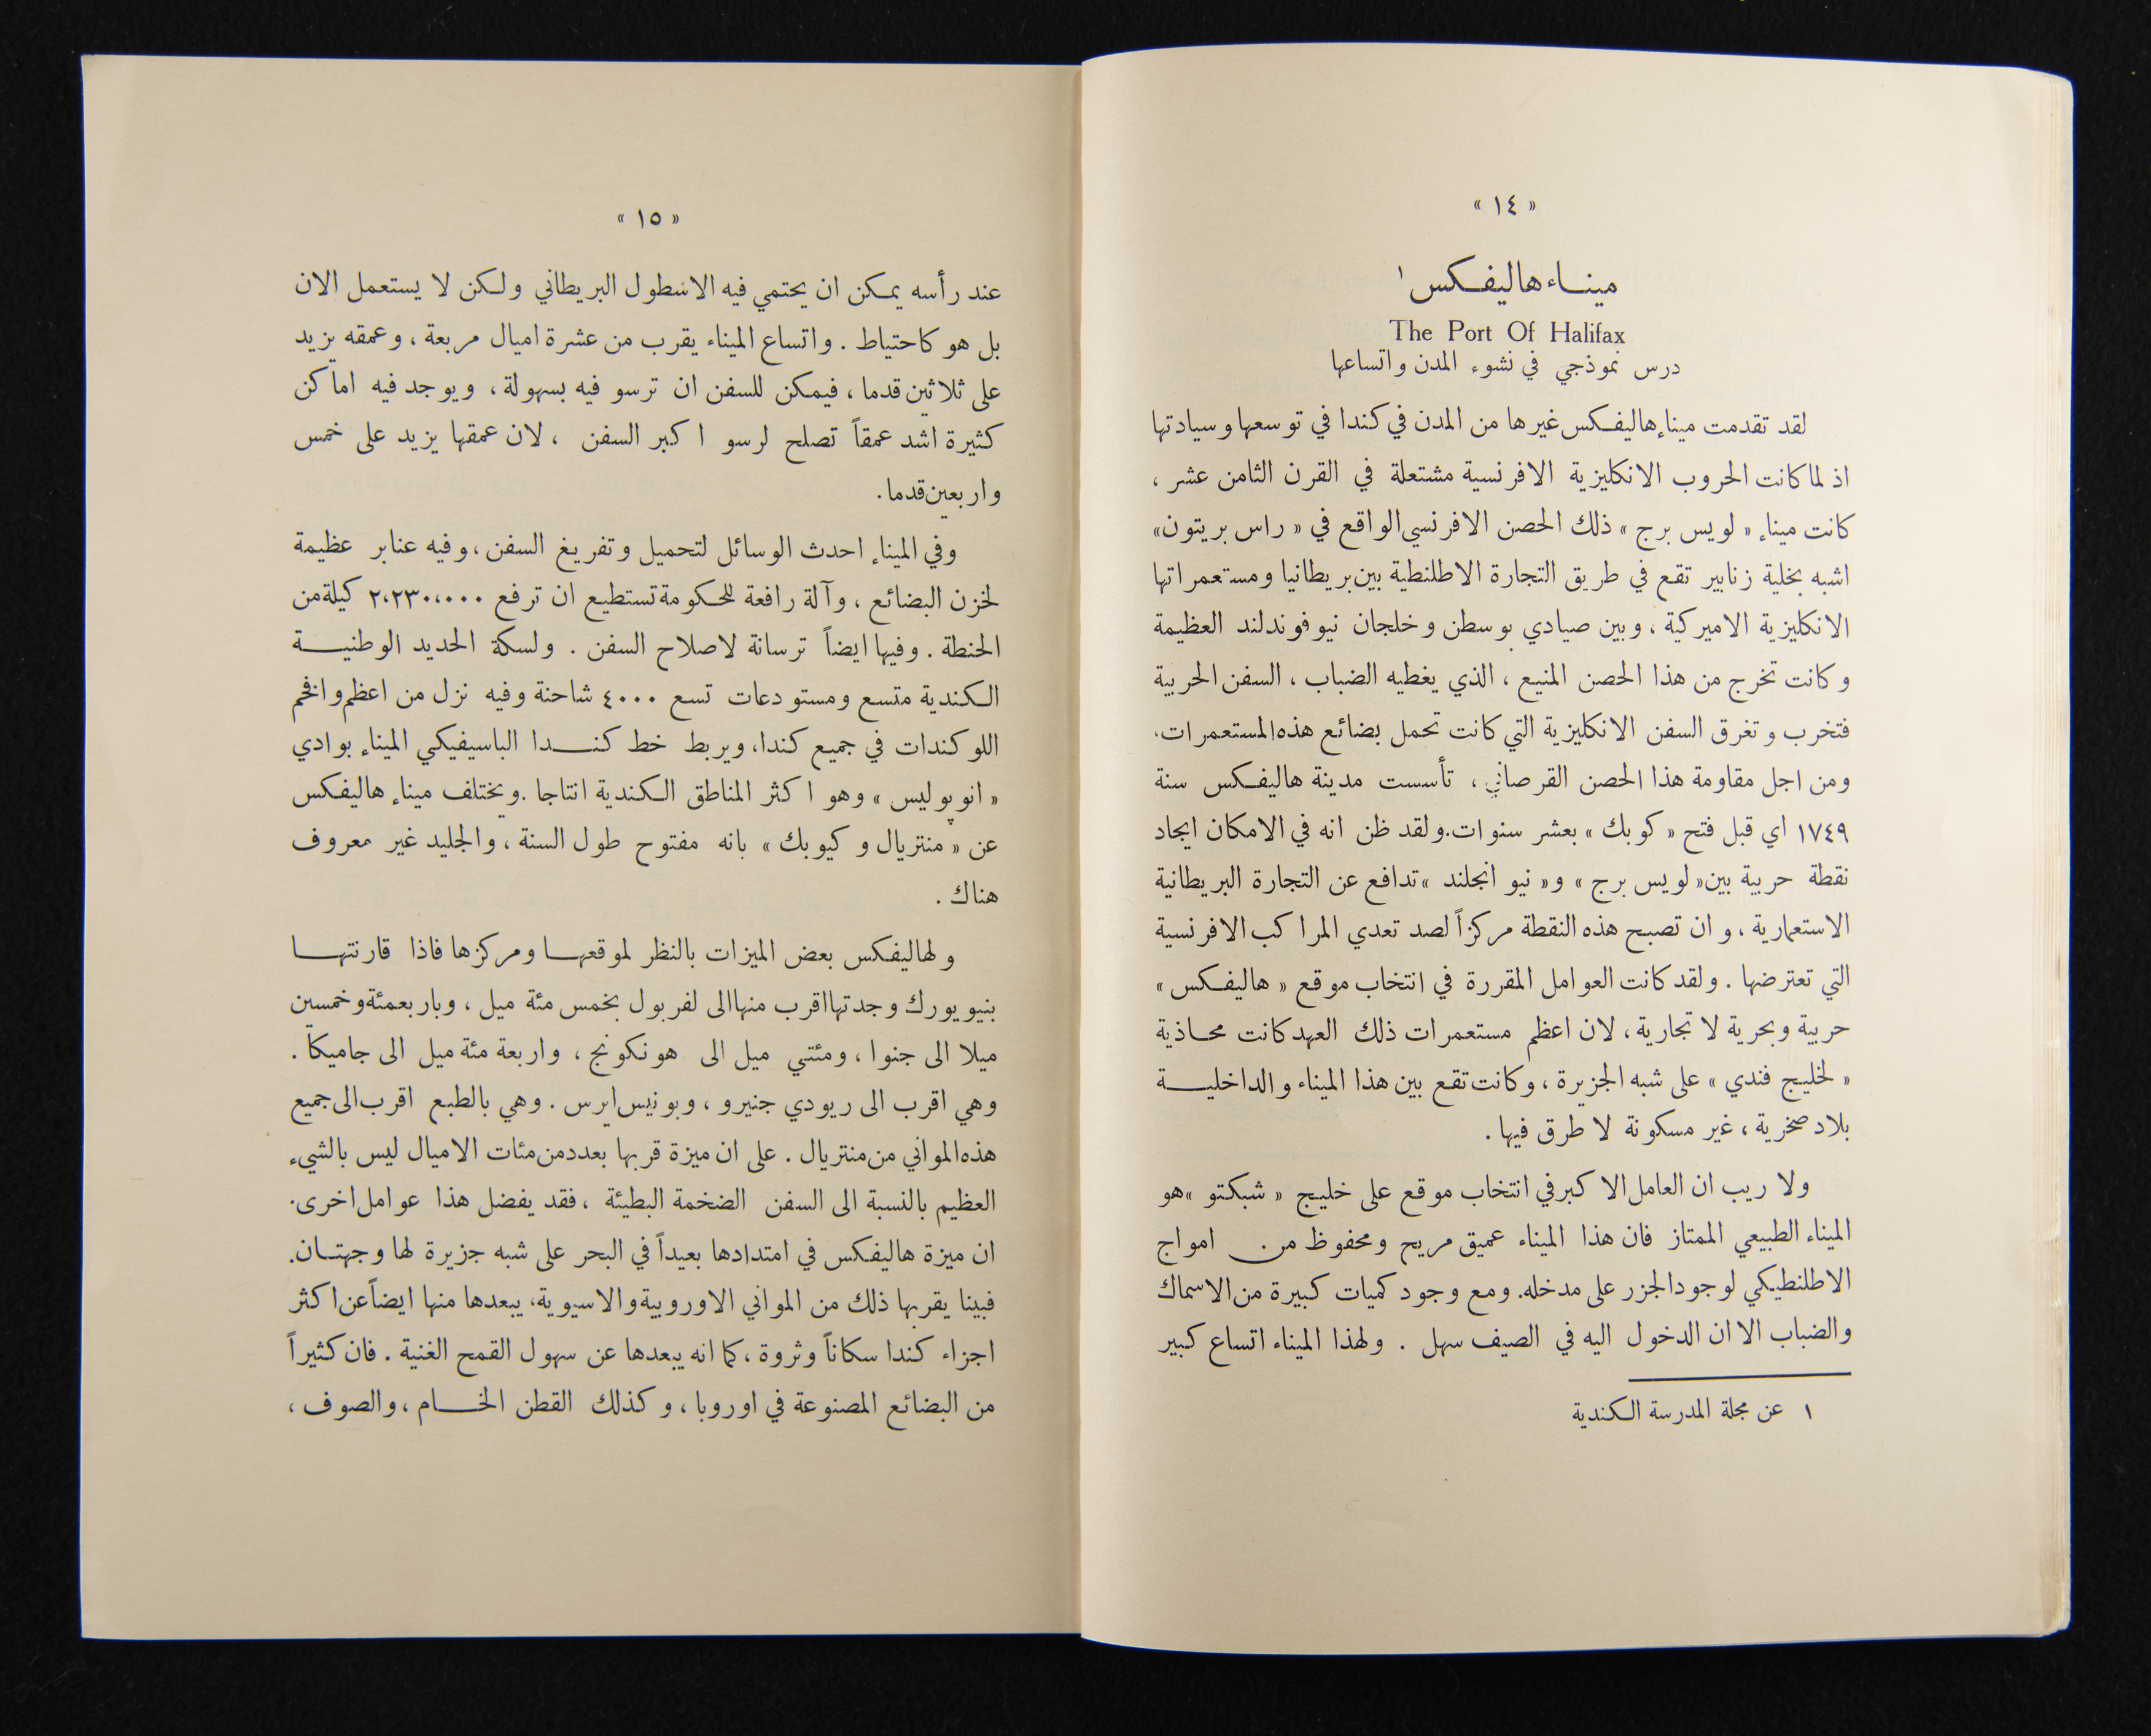 « ١٤ »
مينـاء هاليفـكس ١
The Port Of Halifax
درس نموذجي في نشوء المدن واتساعها
لقد تقدمت ميناء هاليفـكس غيرها من المدن في كندا في توسعها وسيادتها
اذ لما كانت الحروب الانكليزية الافرنسية مشتعلة في القرن الثامن عشر ،
كانت ميناء « لويس برج » ذلك الحصن الافرنسي الواقع في « راس بريتون»
اشبه بخلية زنابير تقع في طريق التجارة الاطلنطية بين بريطانيا ومستعمراتها
الانكليزية الاميركية ، وبين صيادي بوسطن وخلجان نيوفوندلند العظيمة
وكانت تخرج من هذا الحصن المنيع ، الذي يغطيه الضباب ، السفن الحربية
فتخرب وتغرق السفن الانكليزية التي كانت تحمل بضائع هذه المستعمرات،
ومن اجل مقاومة هذا الحصن القرصاني ، تأسست مدينة هاليفـكس سنة
١٧٤٩ اي قبل فتح « كوبك » بعشر سنوات.ولقد ظن انه في الامكان ايجاد
نقطة حربية بين« لويس برج » و« نيو انجلند » تدافع عن التجارة البريطانية
الاستعمارية ، وان تصبح هذه النقطة مركزاً لصد تعدي المراكب الافرنسية
التي تعترضها . ولقد كانت العوامل المقررة في انتخاب موقع « هاليفـكس »
حربية وبحرية لا تجارية ، لان اعظم مستعمرات ذلك العهد كانت محـاذية
« لخليج فندي » على شبه الجزيرة ، وكانت تقع بين هذا الميناء والداخليـــة
بلاد صخرية ، غير مسكونة لا طرق فيها .
ولا ريب ان العامل الاكبر في انتخاب موقع على خليج « شبكتو »هو
الميناء الطبيعي الممتاز فان هذا الميناء عميق مريح ومحفوظ من امواج
الاطلنطيكي لوجود الجزر على مدخله. ومع وجود كميات كبيرة من الاسماك
والضباب الا ان الدخول اليه في الصيف سهل . ولهذا الميناء اتساع كبير
١ عن مجلة المدرسة الـكندية
« ١٥ »
عند رأسه يمـكن ان يحتمي فيه الاسطول البريطاني ولـكن لا يستعمل الان
بل هو كاحتياط . واتساع الميناء يقرب من عشرة اميال مربعة ، وعمقه يزيد
على ثلاثين قدما ، فيمكن للسفن ان ترسو فيه بسهولة ، ويوجد فيه اماكن
كثيرة اشد عمقاً تصلح لرسو اكبر السفن ، لان عمقها يزيد على خمس
واربعين قدما.
وفي الميناء احدث الوسائل لتحميل وتفريغ السفن ، وفيه عنابر عظيمة
لخزن البضائع ، وآلة رافعة للحـكومة تستطيع ان ترفع ٢،٢٣٠،٠٠٠ كيلة من
الحنطة . وفيها ايضاً ترسانة لاصلاح السفن . ولسكة الحديد الوطنيـــة
الـكندية متسع ومستودعات تسع ٤٠٠٠ شاحنة وفيه نزل من اعظم وافخم
اللوكندات في جميع كندا، ويربط خط كنـــدا الباسيفيكي الميناء بوادي
« انوپوليس » وهو اكثر المناطق الـكندية انتاجا .ويختلف ميناء هاليفـكس
عن « منتريال وكيوبك » بانه مفتوح طول السنة ، والجليد غير معروف
هناك .
ولهاليفـكس بعض الميزات بالنظر لموقعهـا ومركزها فاذا قارنتهـا
بنيويورك وجدتها اقرب منها الى لفربول بخمس مئة ميل ، وباربعمئة وخمسين
ميلا الى جنوا ، ومئتي ميل الى هونكونج ، واربعة مئة ميل الى جاميكا .
وهي اقرب الى ريودي جنيرو ، وبونيس ايرس . وهي بالطبع اقرب الى جميع
هذه المواني من منتريال . على ان ميزة قربها بعدد من مئات الاميال ليس بالشيء
العظيم بالنسبة الى السفن الضخمة البطيئة ، فقد يفضل هذا عوامل اخرى.
ان ميزة هاليفكس في امتدادها بعيداً في البحر على شبه جزيرة لها وجهتـان.
فبينا يقربها ذلك من المواني الاوروبية والاسيوية، يبعدها منها ايضاً عن اكثر
اجزاء كندا سكاناً وثروة ، كما انه يبعدها عن سهول القمح الغنية . فان كثيراً
من البضائع المصنوعة في اوروبا ، وكذلك القطن الخـــام ، والصوف ،